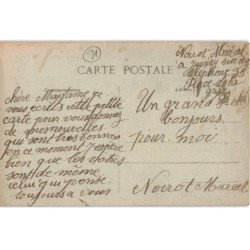 71
Noirot Marcel
Téléphone 35
Place de la
gare
CARTE POSTALE
chère Madame je
vous écris cette petite
carte pour vous donner
de mes nouvelles
qui sont très bonnes
en ce moment j'espère
bien que les votres
sont de même
celui qui pense
toujours a vous
Un grand
bonjours
pour moi
Noirot Marcel